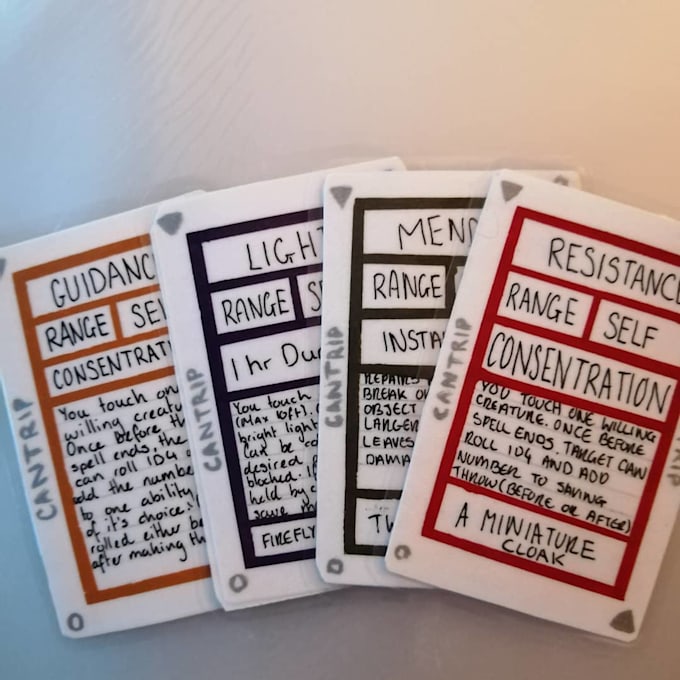 CANTRIP
GUIDANC
RANGE SEL
CONSENTRAT
You touch on
willing creatu
Once before th
spell ends, the
can roll 1D4 a
add the numbe
to one ability
of it's choice.
rolled either be
after making th
O
CANTRIP
LIGHT
RANGE SE
1 hr Dur
You touch
(Max 10ft).
bright light
can be co
desired.
blocked. If
held by
save th
FIREFLY
O
CANTRIP
MEND
RANGE
INSTA
REPAIRS
BREAK O
OBJECT
LARGER
LEAVES
DAMA
TW
O
CANTRIP
RESISTANCE
RANGE SELF
CONSENTRATION
YOU TOUCH ONE WILLING
CREATURE. ONCE BEFORE
SPELL ENDS. TARGET CAN
ROLL 1D4 AND ADD
NUMBER TO SAVING
THROW (BEFORE OR AFTER)
A MINIATURE
CLOAK
O